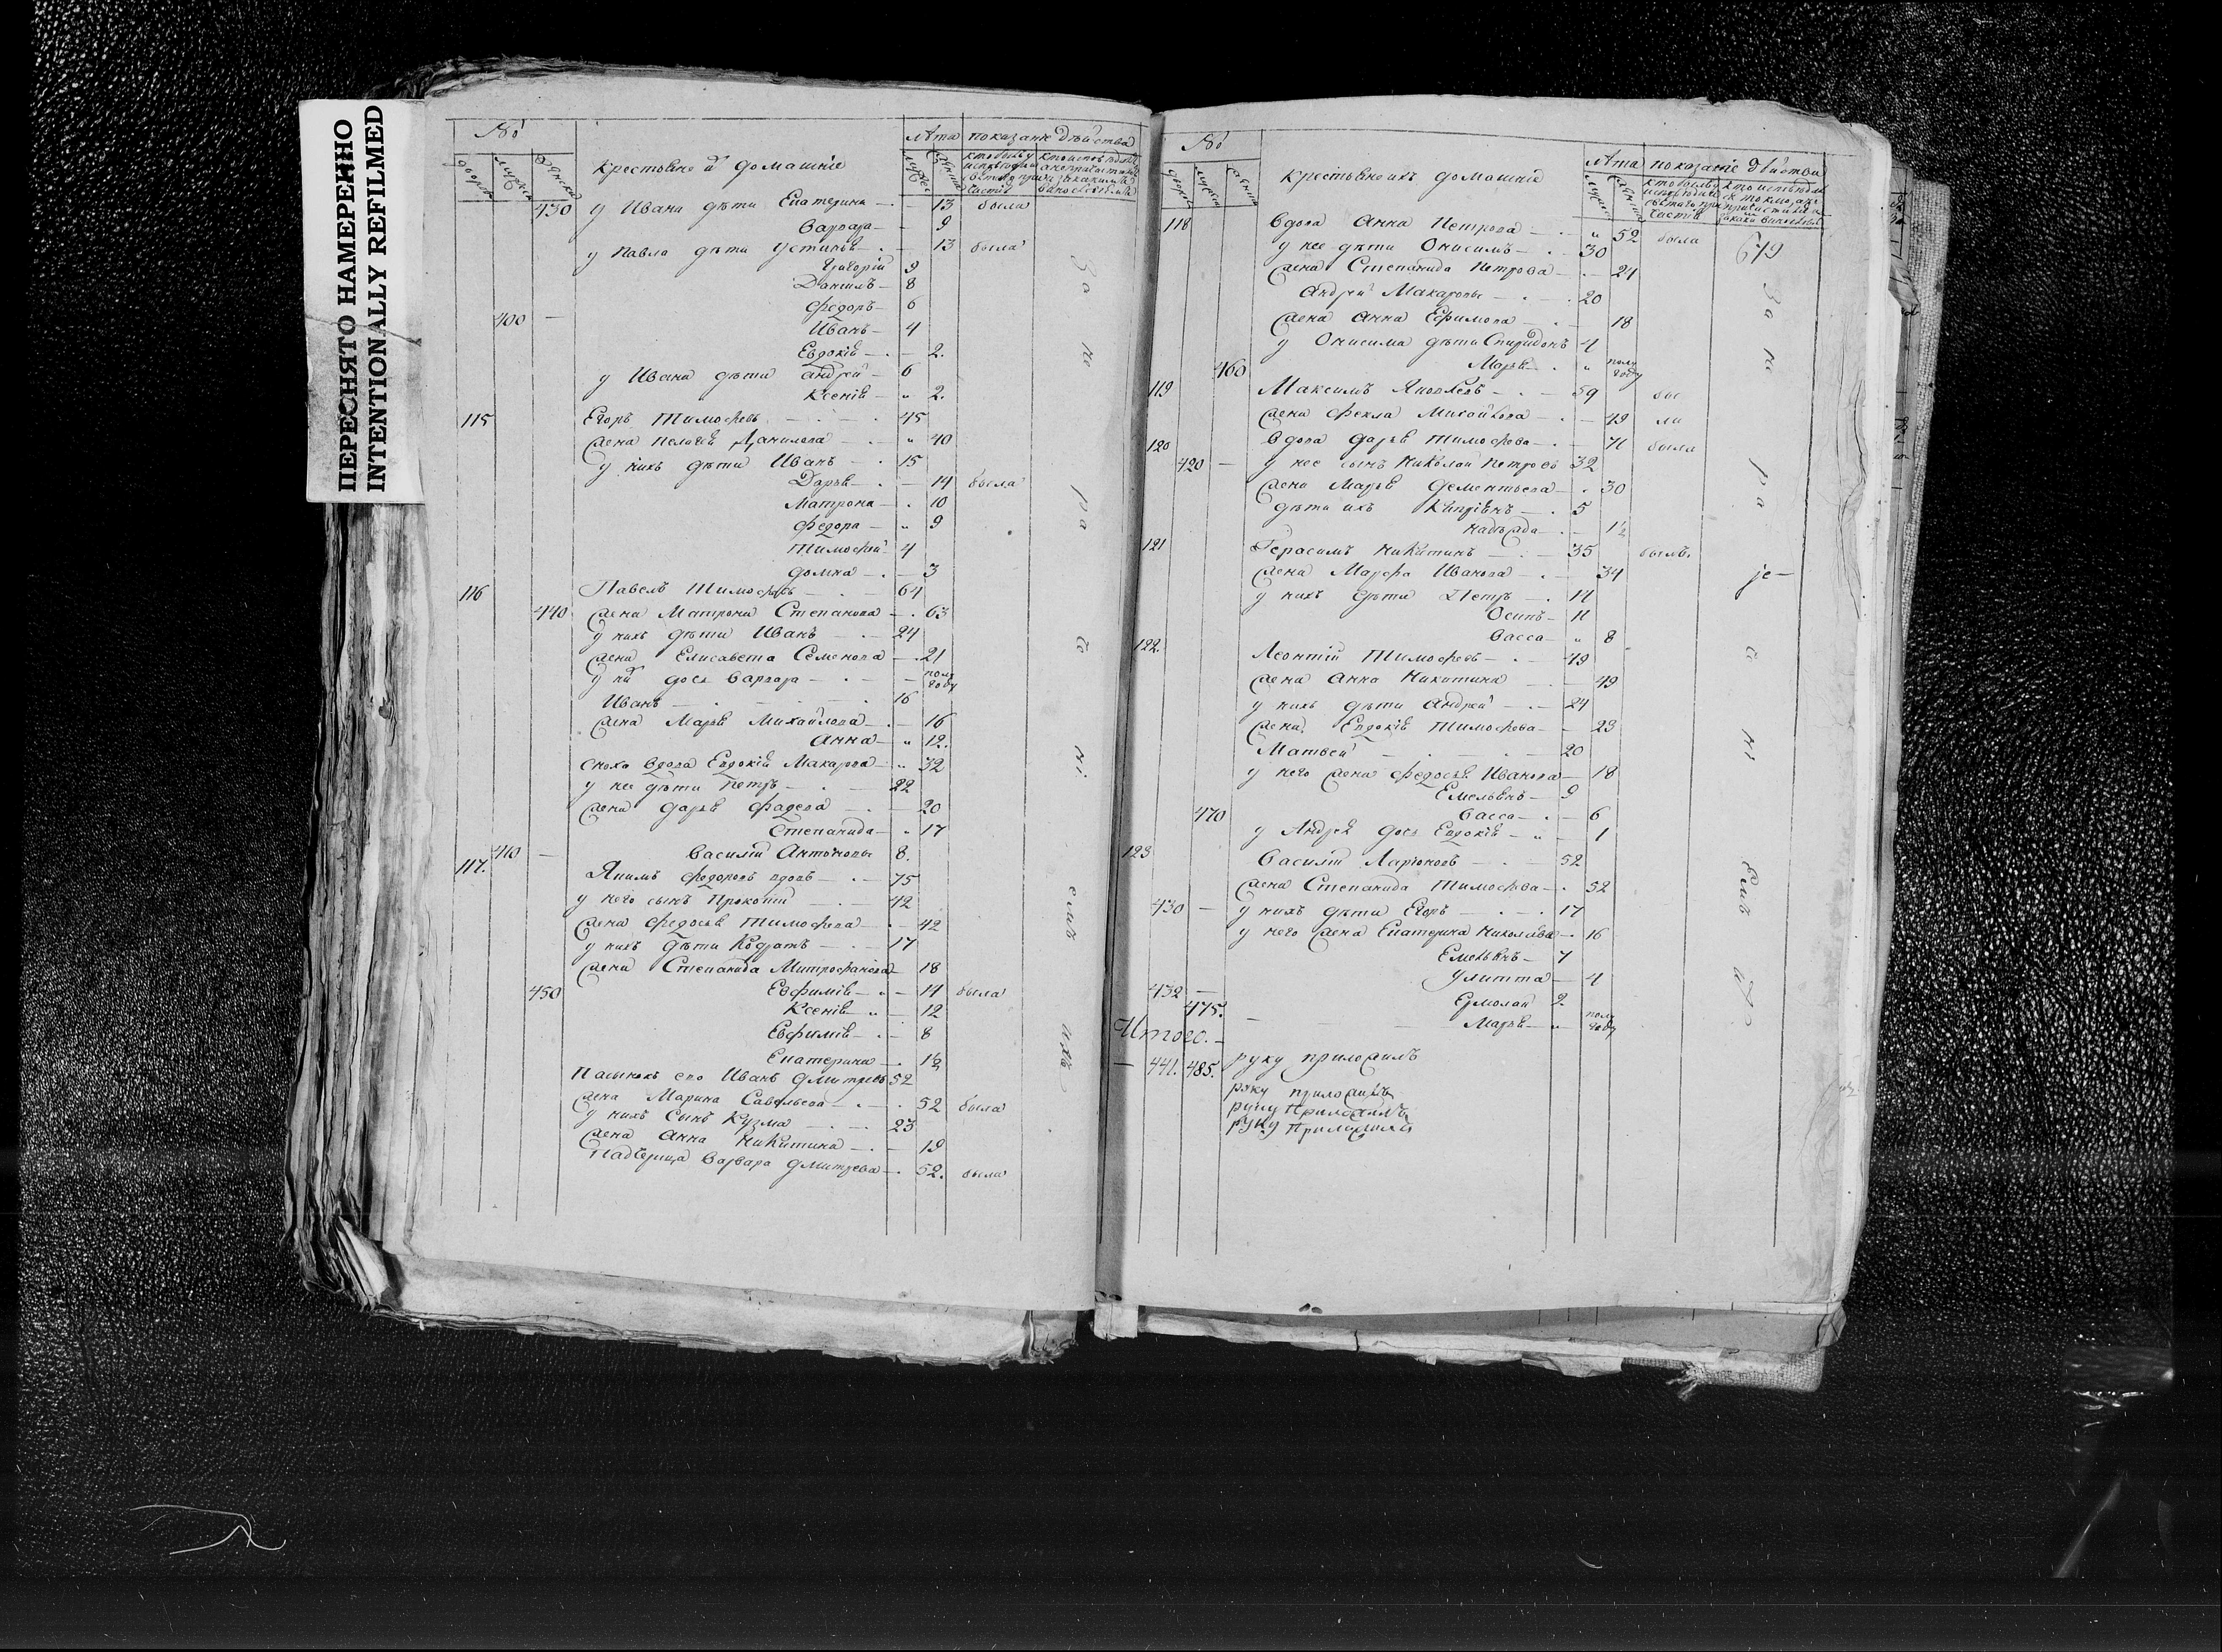 ПЕРЕСНЯТО НАМЕРЕННО
INTENTIONALLY REFILMED
№
Лѣта показаніе дѣйства
крестьяне и домашніе
430 у Ивана дѣти Екатерина 13 была
Варвара 9
у Павла дѣти Устинья 13 была
Григорій 9
Данилъ 8
Федоръ 6
400 Иванъ 4
Евдокія 2.
у Ивана дѣти Андрей 6
Ксенія 2.
115 Егоръ Тимофеевъ 45
жена Пелагея Данилова 40
у нихъ дѣти Иванъ 15
Дарья 14 была
Матрона 10
Федора 9
Тимофей 4
Домна 3
116 Павелъ Тимофеевъ 64
440 жена Матрона Степанова 63
у нихъ дѣти Иванъ 24
жена Елисавета Семенова 21
у ней дочь Варвара полугоду
Иванъ 16
жена Марья Михайлова 16
Анна 12.
сноха вдова Евдокія Макарова 32
у нее дѣти Петръ 22
жена Дарья Фадеева 20
Степанида 17
410 Василій Антоновъ 8.
117. Якимъ Федоровъ вдовъ 75
у него сынъ Прокопій 42
жена Федосья Тимофеева 42
у нихъ дѣти Кодратъ 17
жена Степанида Митрофанова 18
450 Евфимія 14 была
Ксенія 12
Евфимія 8
Екатерина 1½
Пасынокъ его Иванъ Дмитревъ 52
жена Марина Савельева 52 была
у нихъ сынъ Кузма 23
жена Анна Никитина 19
Падчерица Варвара Дмитрева 52. была
№
Лѣта показаніе дѣйства
крестьяне ихъ домашніе
679
118 вдова Анна Петрова 52 была
у нее дѣти Онисимъ 30
жена Степанида Петрова 24
Андрей Макаровъ 20
жена Анна Ефимова 18
у Онисима дѣти Спиридонъ 4
460 Марья полугоду
119 Максимъ Яковлевъ 59 бы
жена Фекла Михайлова 49 ли
120 вдова Дарья Тимофеева 71 была
420 у нее сынъ Николай Петровъ 32
жена Марья Дементьева 30
дѣти ихъ Кипріянъ 5
Надежда 1½
121 Герасимъ Никитинъ 35 былъ.
жена Марфа Иванова 34
у нихъ дѣти Петръ 14
Осипъ 11
Васса 8
122. Леонтій Тимофеевъ 49
жена Анна Никитина 49
у нихъ дѣти Андрей 24
жена Евдокія Тимофеева 23
Матвей 20
у него жена Федосья Иванова 18
Емельянъ 9
470 Васса 6
у Андрея дочь Евдокія 1
123 Василій Ларіоновъ 52
жена Степанида Тимофеева 52
430 у нихъ дѣти Егоръ 17
у него жена Екатерина Николаева 16
Емельянъ 7
Улитта 4
432 Ермолай 2
475. Марья полугоду
Итого.
441. 485. руку приложилъ
руку приложилъ
руку приложилъ
руку приложилъ